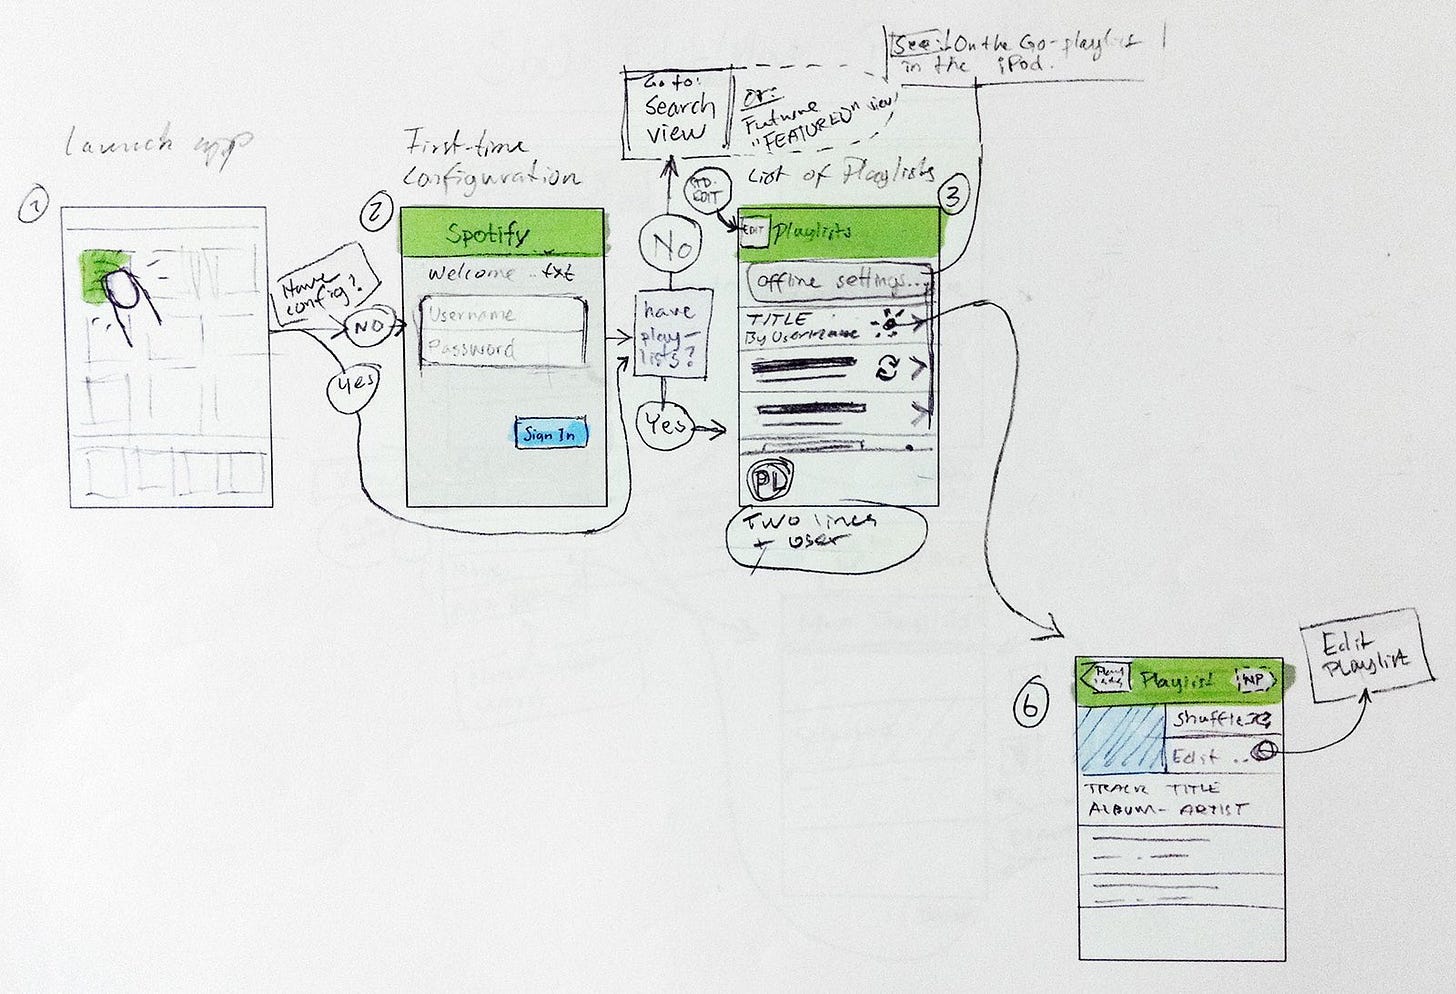 See: On the Go-playlist
in the iPod.
Go to:
Search
view
or:
Future
"FEATURED" view
Launch app
First-time
configuration
List of Playlists
1
2
3
STD.
EDIT
Have
config?
NO
Yes
Spotify
Welcome ..txt
Username
Password
Sign In
No
have
play-
lists?
Yes
EDIT
Playlists
Offline settings...
TITLE
By Username
PL
Two lines
+ user
6
Playlist
NP
Shuffle
Edit ..
TRACK TITLE
ALBUM - ARTIST
Edit
Playlist